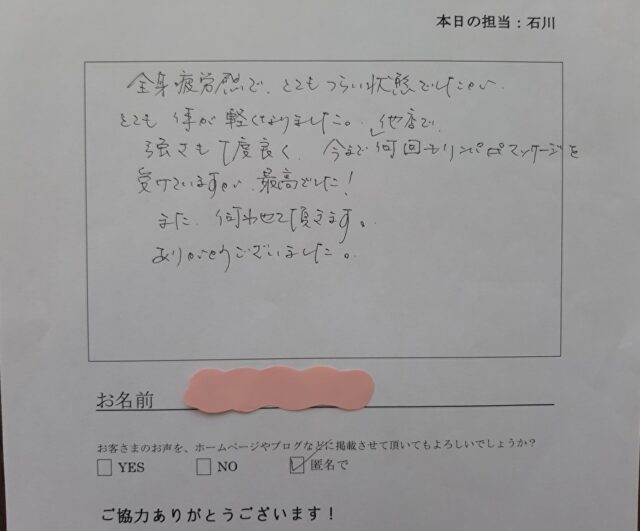 本日の担当：石川
全身疲労感で、とてもつらい状態でしたが、
とても 体が 軽くなりました。 他店で、
強さも丁度良く、今まで何回もリンパマッサージを
受けていますが、最高でした！
また、伺わせて頂きます。
ありがとうございました。
お名前
お客さまのお声を、ホームページやブログなどに掲載させて頂いてもよろしいでしょうか？
YES NO 匿名で
ご協力ありがとうございます！